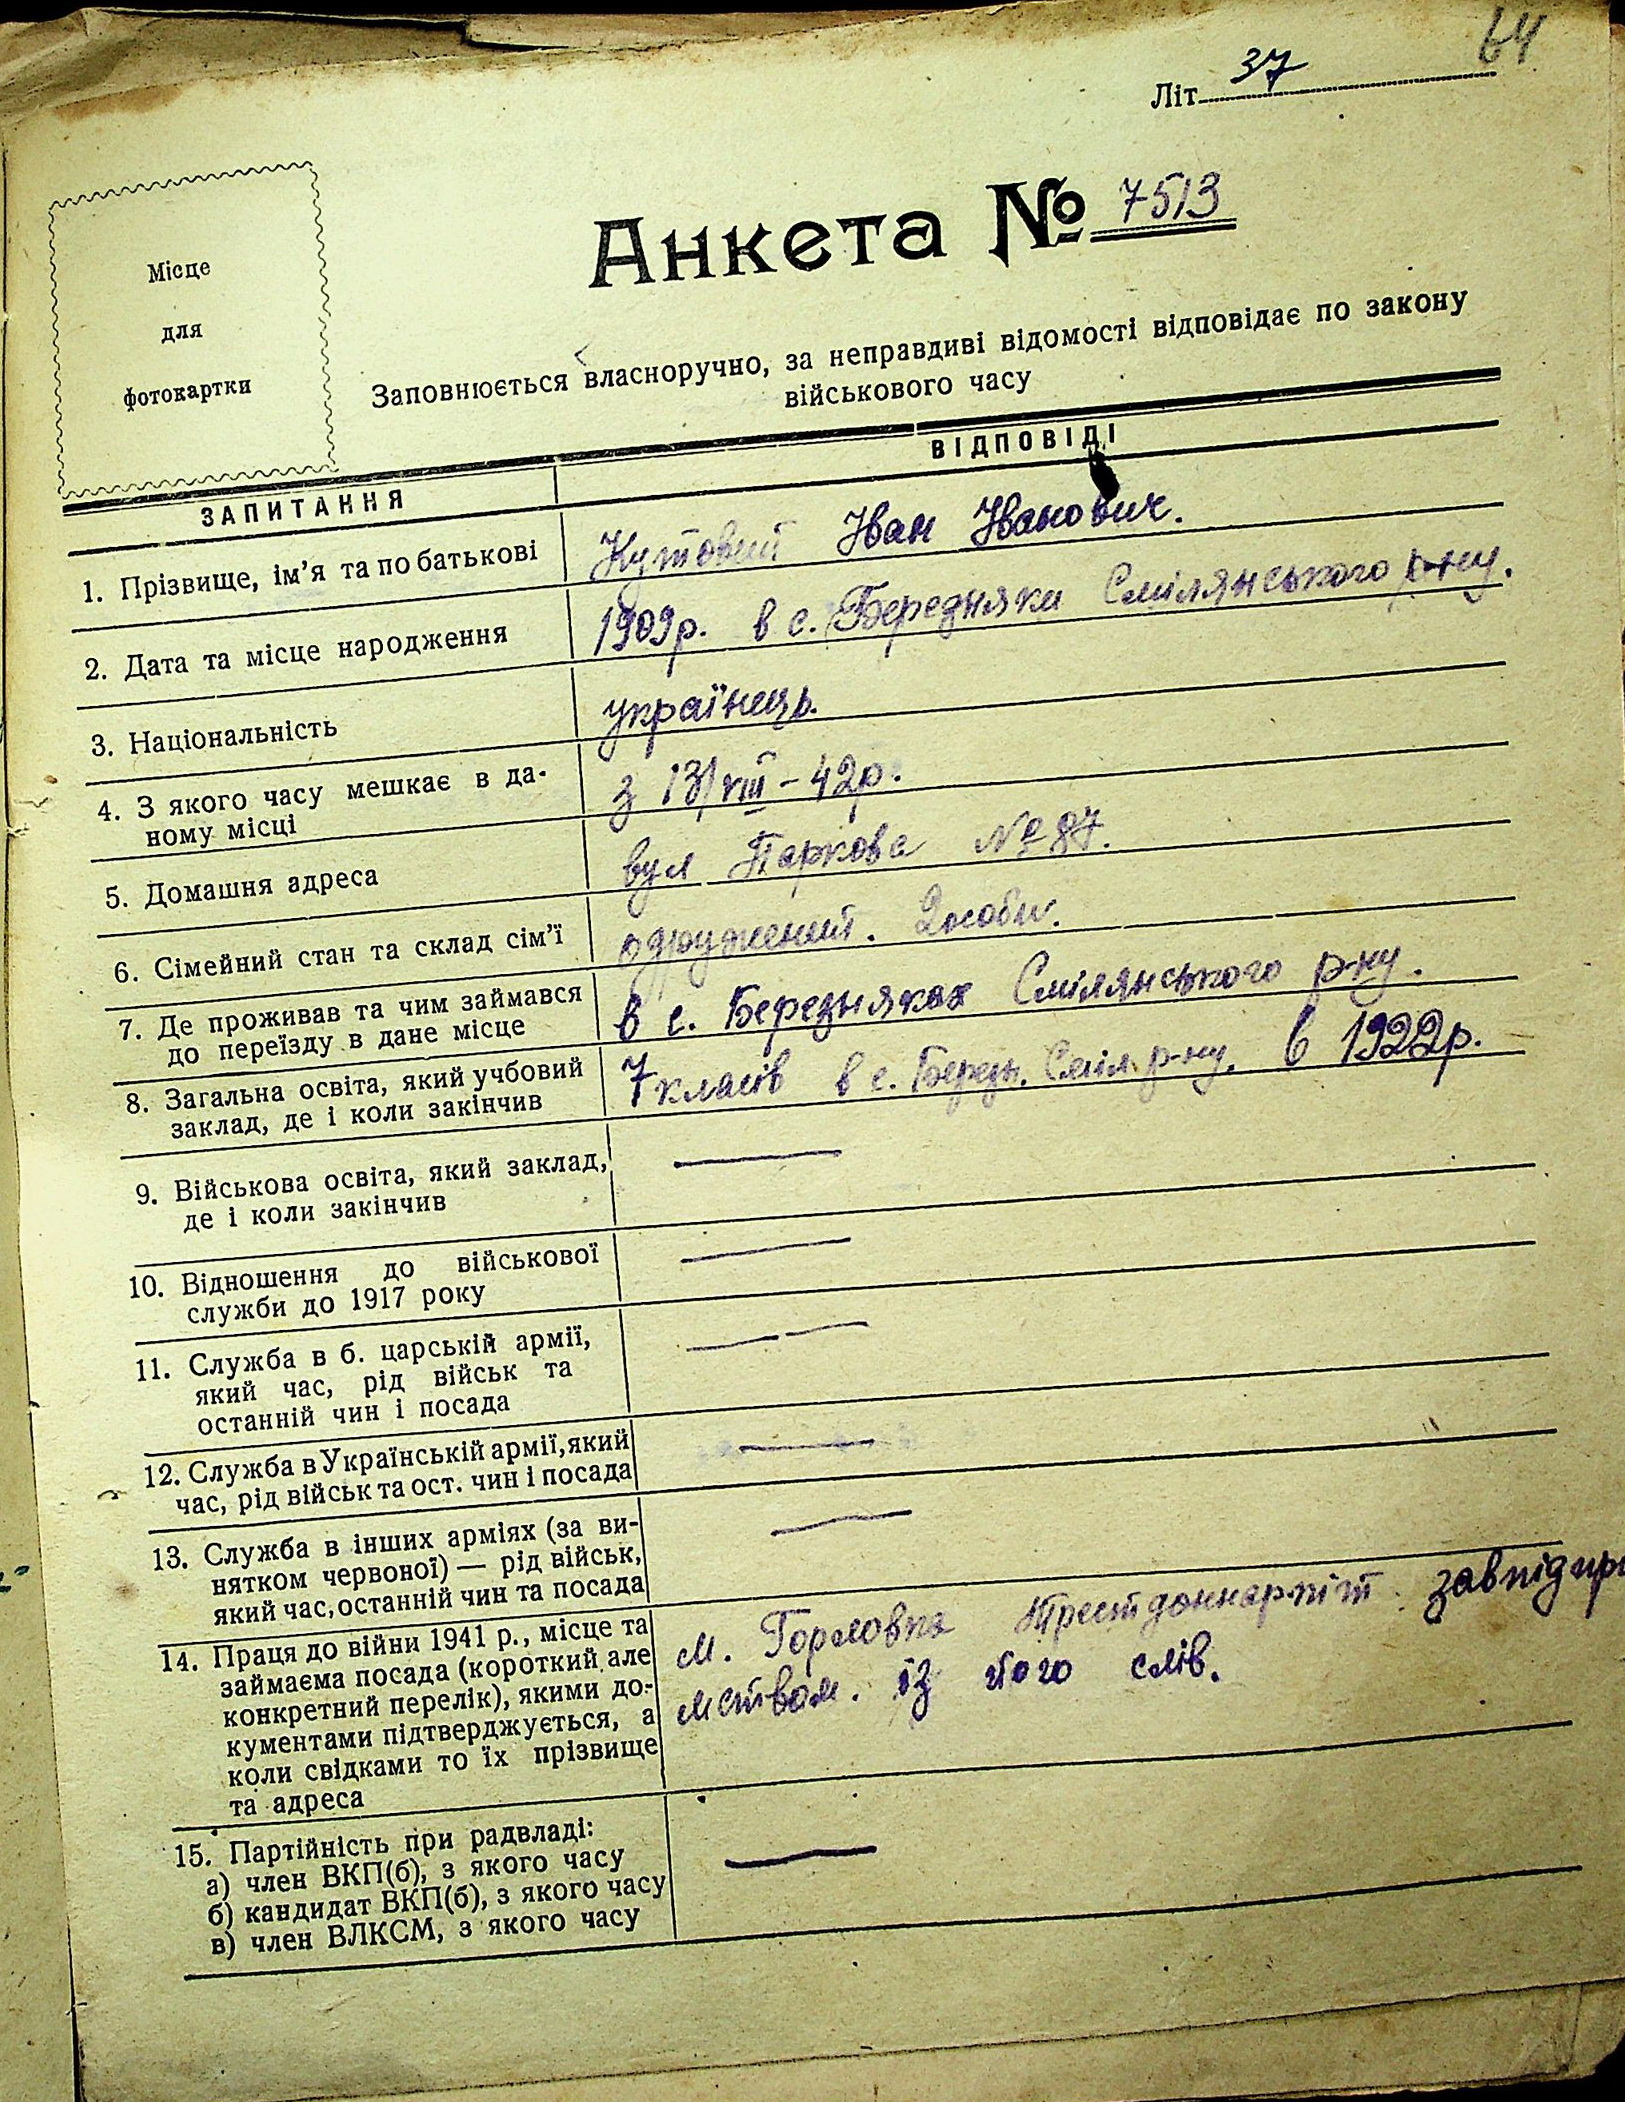 64
Літ 37
Місце
для
фотокартки
Анкета № 7513
Заповнюється власноручно, за неправдиві відомості відповідає по закону
військового часу
ЗАПИТАННЯ
ВІДПОВІДІ
1. Прізвище, ім'я та по батькові
Кутовий Іван Іванович.
2. Дата та місце народження
1909р. в с. Березняки Смілянського р-ну.
3. Національність
українець.
4. З якого часу мешкає в да-
ному місці
з 13/VIII - 42р.
5. Домашня адреса
вул Паркова № 87.
6. Сімейний стан та склад сім'ї
одружений. 2 особи.
7. Де проживав та чим займався
до переїзду в дане місце
в с. Березняках Смілянського р-ну.
8. Загальна освіта, який учбовий
заклад, де і коли закінчив
7 класів в с. Березн. Сміл. р-ну. в 1922р.
9. Військова освіта, який заклад,
де і коли закінчив
—
10. Відношення до військової
служби до 1917 року
—
11. Служба в б. царській армії,
який час, рід військ та
останній чин і посада
— —
12. Служба в Українській армії, який
час, рід військ та ост. чин і посада
—
13. Служба в інших арміях (за ви-
нятком червоної) — рід військ,
який час, останній чин та посада
—
14. Праця до війни 1941 р., місце та
займаєма посада (короткий але
конкретний перелік), якими до-
кументами підтверджується, а
коли свідками то їх прізвище
та адреса
м. Горловка завпідпри
мством. із його слів.
15. Партійність при радвладі:
а) член ВКП(б), з якого часу
б) кандидат ВКП(б), з якого часу
в) член ВЛКСМ, з якого часу
—